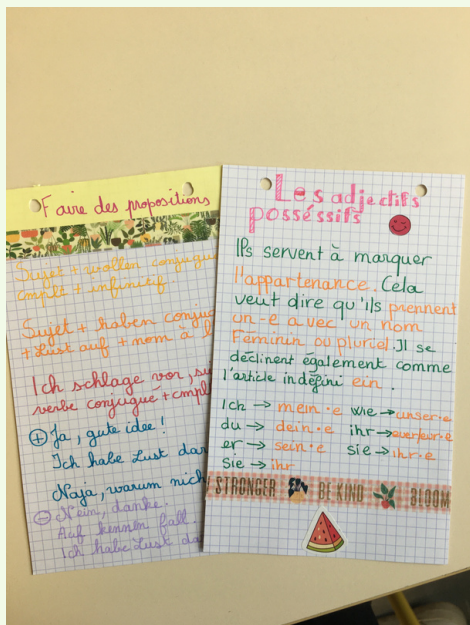 Faire des propositions
Sujet + wollen conjugu
cmplt + infinitif
Sujet + haben conjug
+ Lust auf + nom à l
Ich schlage vor, su
verbe conjugué + cmpl
+ Ja, gute idee!
Ich habe Lust dar
Naja, warum nich
- Nein, danke.
Auf kennen fall.
Ich habe Lust da
Les adjectifs
posséssifs
Ils servent à marquer
l'appartenance. Cela
veut dire qu'ils prennent
un -e avec un nom
Féminin ou pluriel. Il se
déclinent également comme
l'article indéfini ein.
Ich → mein·e wie → unser·e
du → dein·e ihr →
er → sein·e sie → ihr·e
sie → ihr
STRONGER BE KIND BLOOM